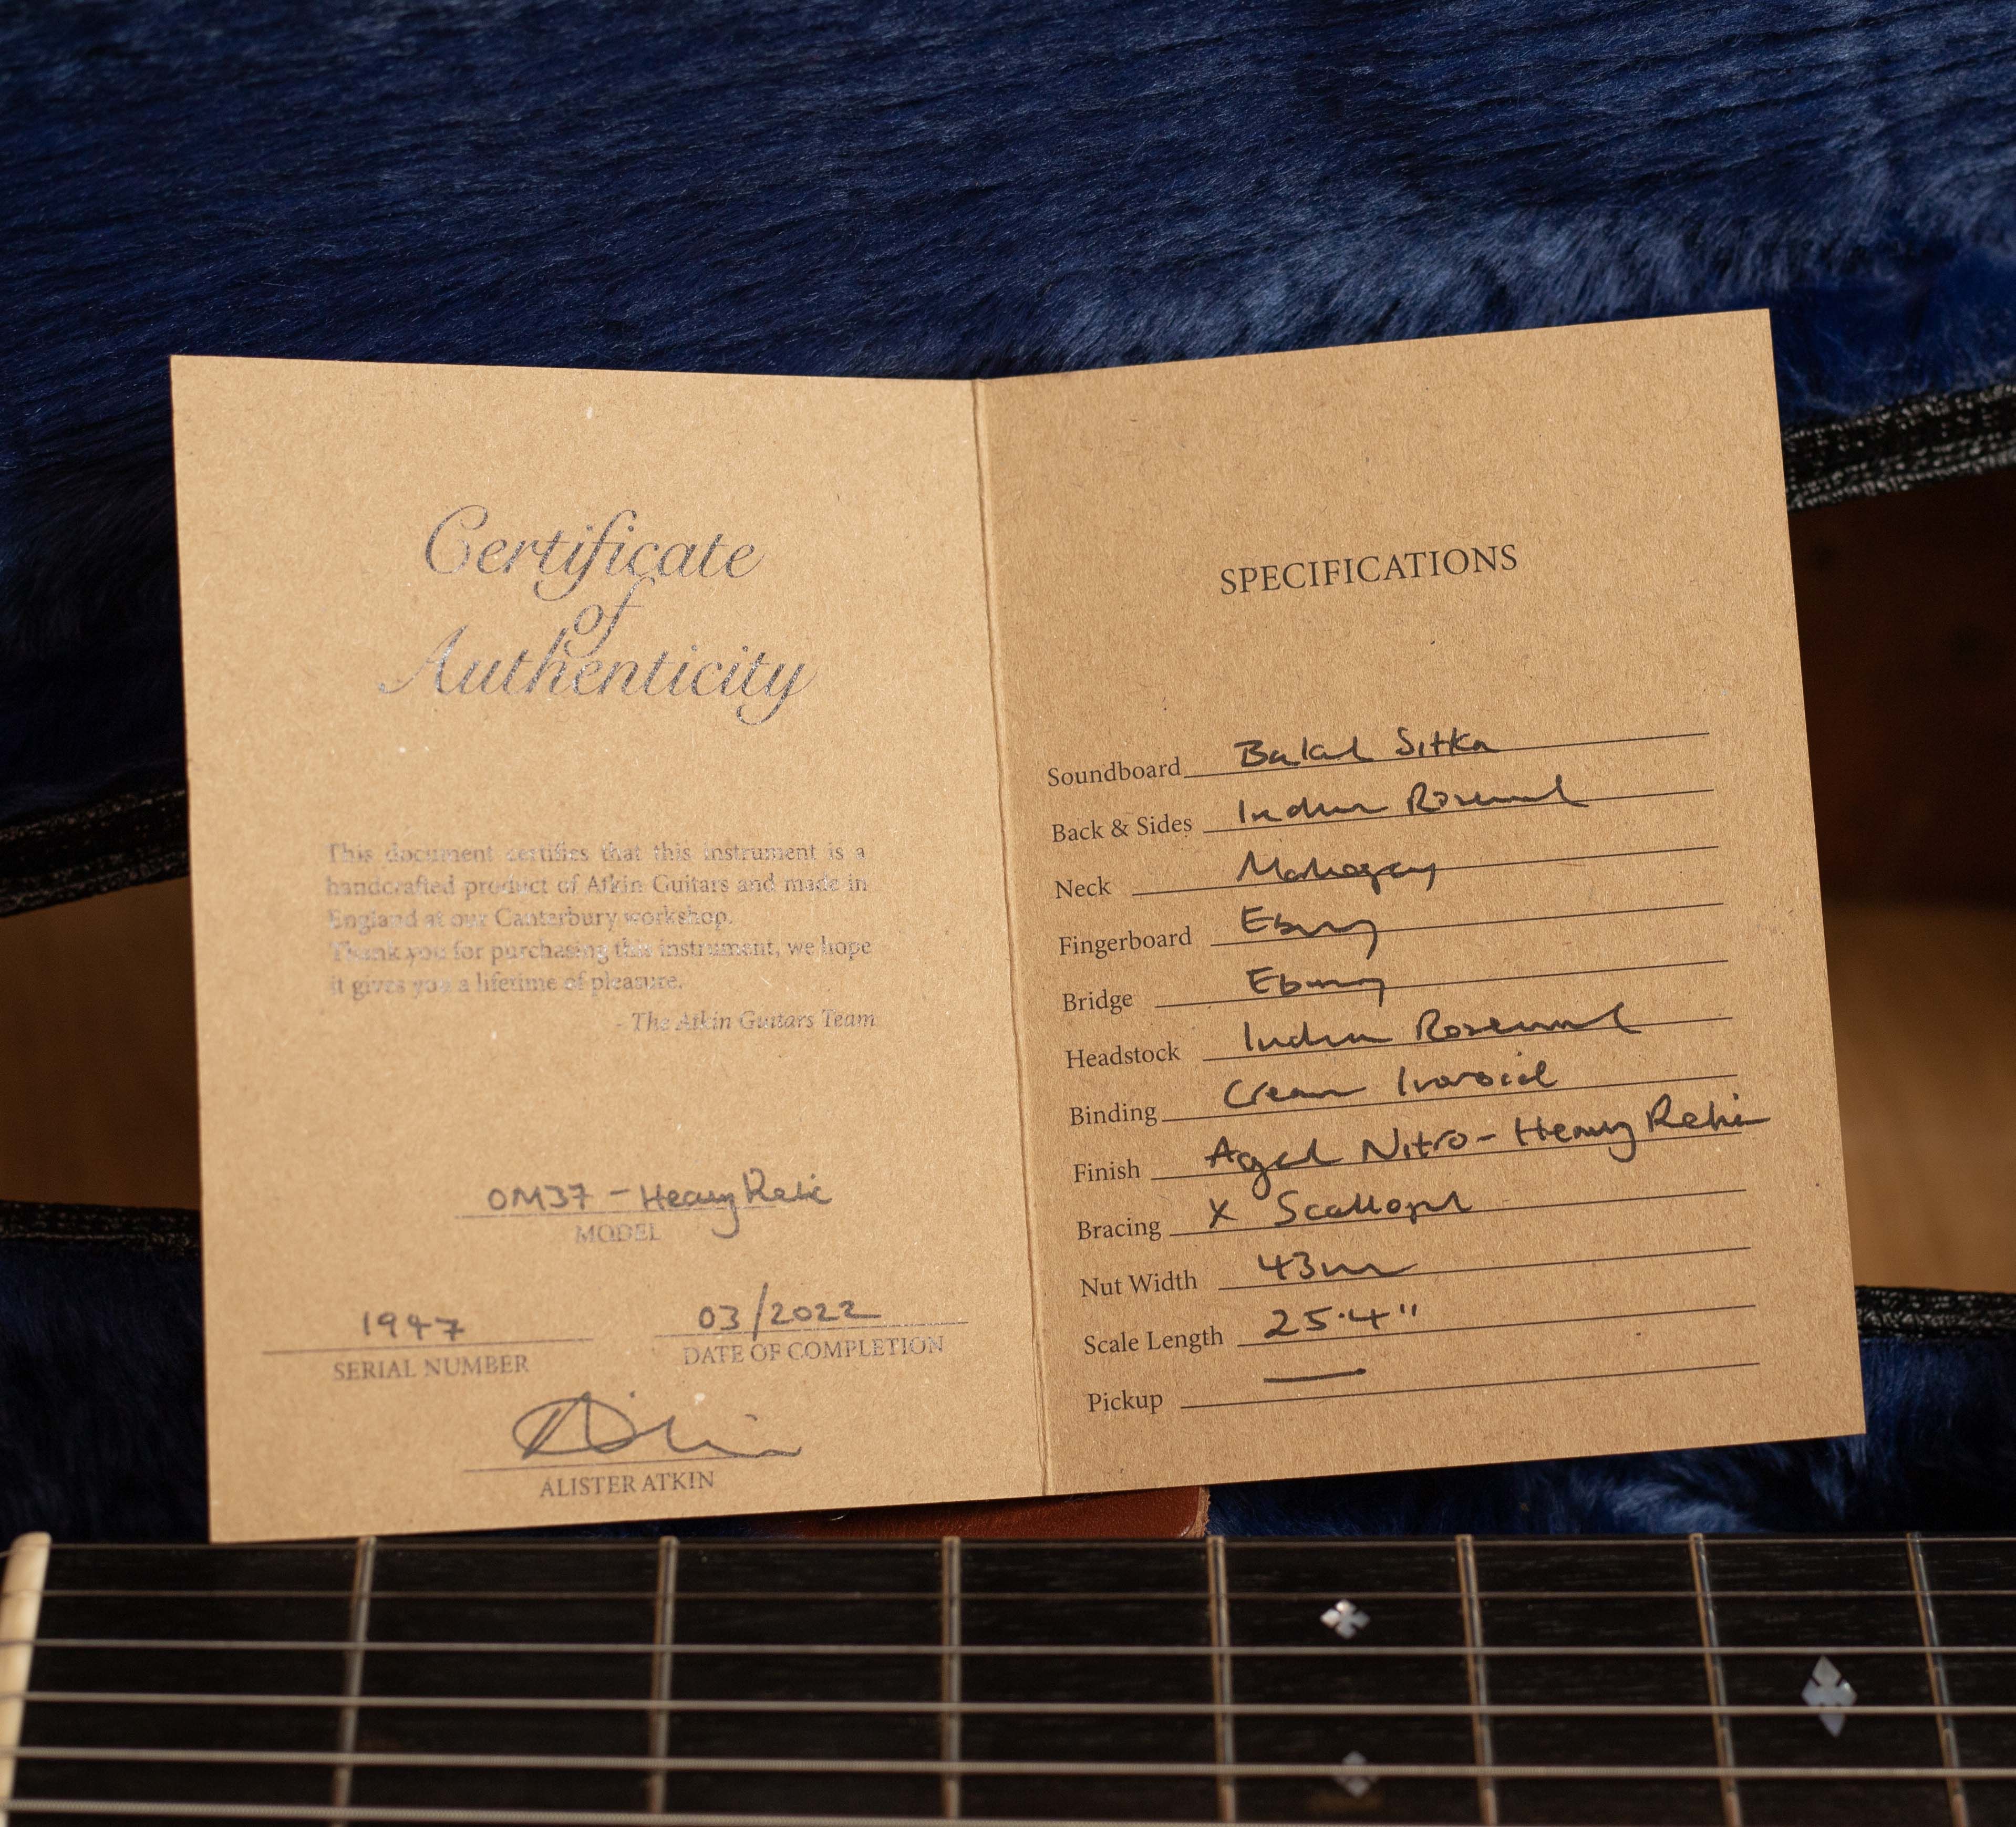 Certificate
of
Authenticity
This document certifies that this instrument is a
handcrafted product of Atkin Guitars and made in
England at our Canterbury workshop.
Thank you for purchasing this instrument, we hope
it gives you a lifetime of pleasure.
- The Atkin Guitars Team
OM37 - Heavy Relic
MODEL
1947 03/2022
SERIAL NUMBER DATE OF COMPLETION
ALISTER ATKIN
SPECIFICATIONS
Soundboard Baked Sitka
Back & Sides Indian Rosewood
Neck Mahogany
Fingerboard Ebony
Bridge Ebony
Headstock Indian Rosewood
Binding Cream Ivoroid
Finish Aged Nitro - Heavy Relic
Bracing X Scalloped
Nut Width 43mm
Scale Length 25.4"
Pickup —